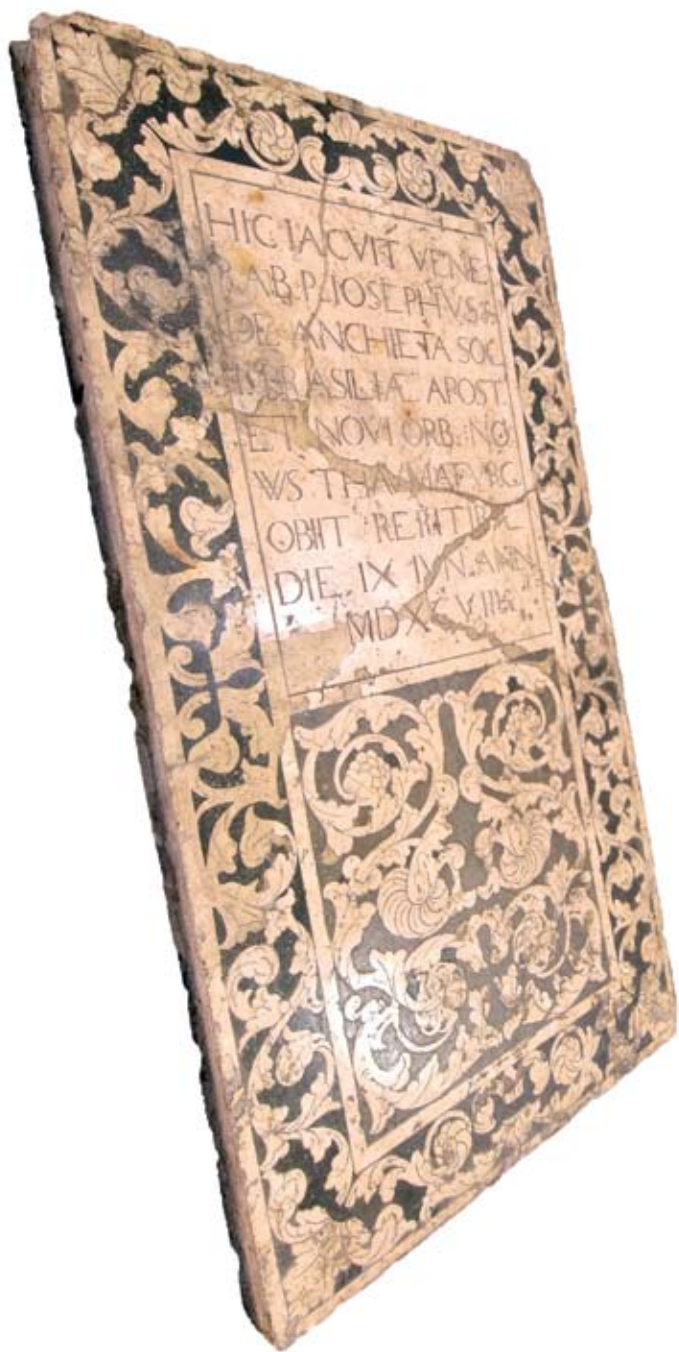 HIC IACVIT VENE
RAB. P. IOSEPHVS
DE ANCHIETA SOC.
BRASILIÆ APOST.
ET NOVI ORB. NO
WS THAVMATVRG.
OBIIT RERITIBÆ
DIE IX IVN. ANN.
MDXCVII